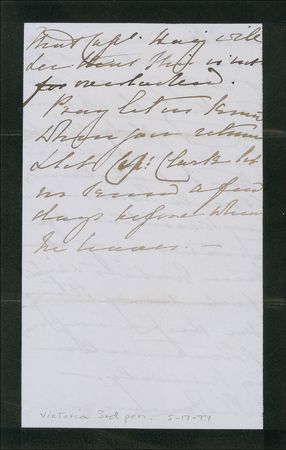 that Capt. Haig will
see that this is not
for overlooked.
Pray let us know
when you return
& let Capt: Clark let
us know a few
days before when
he leaves. —
Victoria 3rd pers. 5-17-77